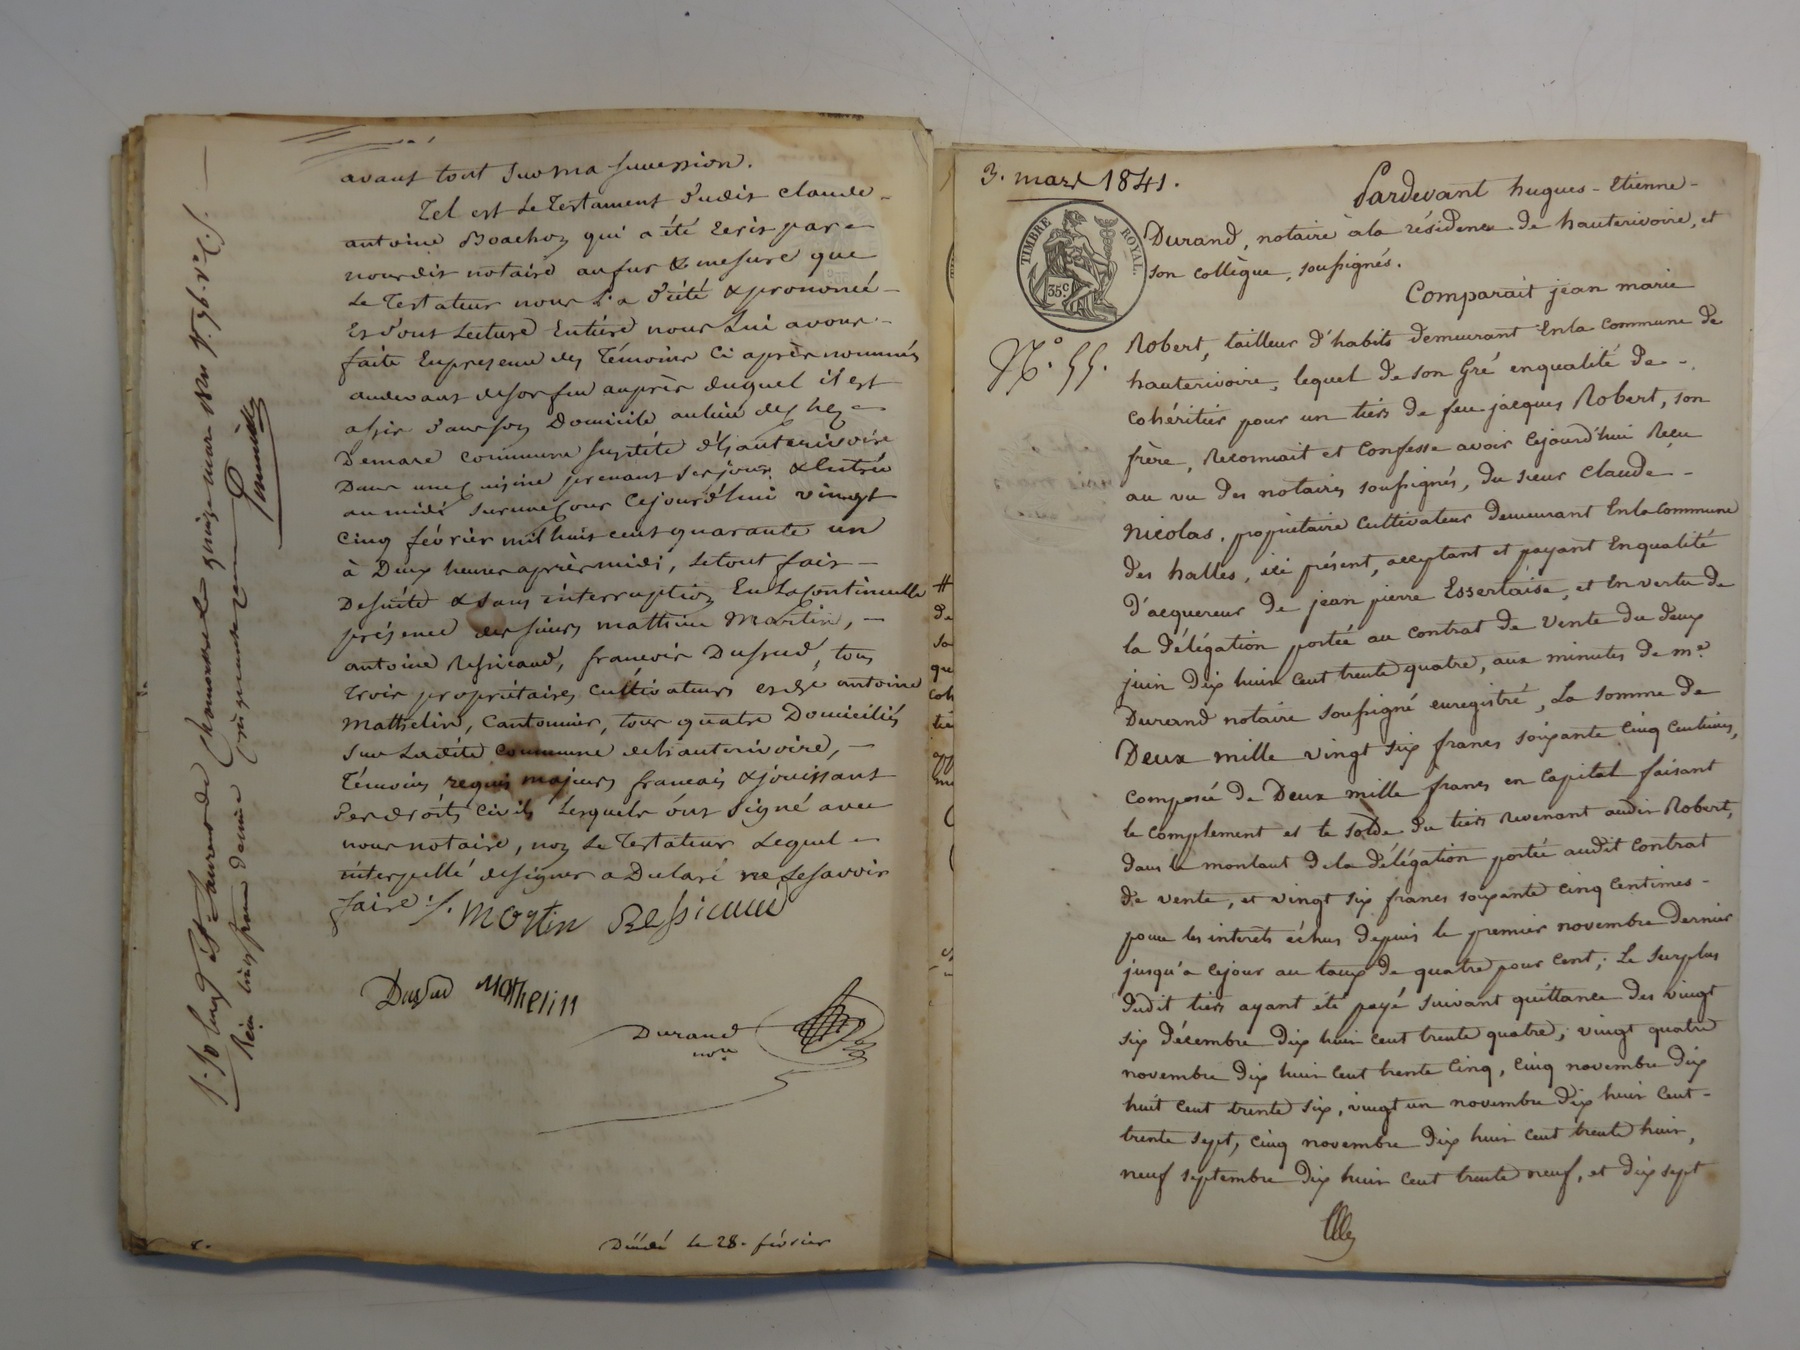 avant tout sur ma succession.
Tel est le Testament dudit claude
antoine Boachon qui a été Ecrit par
nous dit notaire au fur & mesure que
le Testateur nous l'a dicté & prononcé
Et dont Lecture Entière nous Lui avons
faite En presence des Témoins Ci après nommés
au devant de son feu auprès duquel il est
assis dans son Domicile au lieu de chez
Demare commune susdite d'hauterivoire
Dans une Cuisine prenant ses jours & Entrée
au midi sur une Cour Cejourd'hui vingt
cinq février mil huit cent quarante un
à Deux heures après midi, Le tout fait
De suite & sans interruption En La Continuelle
présence des sieurs mathieu Martin,
antoine Ressicaud, francois Dussud, tous
trois propriétaires Cultivateurs et de antoine
Mathelin, Cantonnier, tous quatre Domiciliés
sur Ladite commune de hauterivoire,
Témoins requis majeurs francais & jouissant
des droits Civils Lesquels ont signé avec
nous notaire, non Le Testateur Lequel
interpellé de signer a Déclaré ne Le savoir
faire ./.
Martin Ressicaud
Dussud Mathelin
Durand
nore
8.
28. février
3. mars 1841.
TIMBRE ROYAL.
35 c
No. 55.
Pardevant hugues-Etienne-
Durand, notaire à la résidence de hauterivoire, et
son collègue, soussignés.
Comparait jean marie
Robert, tailleur d'habits demeurant En la Commune de
hauterivoire, lequel de son Gré en qualité de -
cohéritier pour un tiers de feu jacques Robert, son
frère, Reconnait et Confesse avoir Cejourd'hui Reçu
au vu des notaires soussignés, du sieur Claude -
Nicolas, propriétaire Cultivateur demeurant En la Commune
des halles, ici présent, acceptant et payant En qualité
d'acquereur de jean pierre Essertaise, et En vertu de
la délégation portée au contrat de Vente du deux
juin dix huit Cent trente quatre, aux minutes de me
Durand notaire soussigné enregistré, La Somme de
Deux mille vingt six francs soixante Cinq Centimes,
Composée de Deux mille francs en Capital faisant
le Complement et le solde du tiers Revenant audit Robert,
dans le montant de la délégation portée audit Contrat
de vente, et vingt six francs soixante Cinq Centimes -
pour les interets échus depuis le premier novembre dernier
jusqu'a cejour au taux de quatre pour Cent ; Le Surplus
dudit tiers ayant été payé suivant quittances des vingt
six décembre dix huit Cent trente quatre, vingt quatre
novembre dix huit Cent trente Cinq, Cinq novembre dix
huit Cent trente six, vingt un novembre dix huit Cent -
trente sept, Cinq novembre dix huit Cent trente huit,
neuf septembre dix huit Cent trente neuf, et dix sept